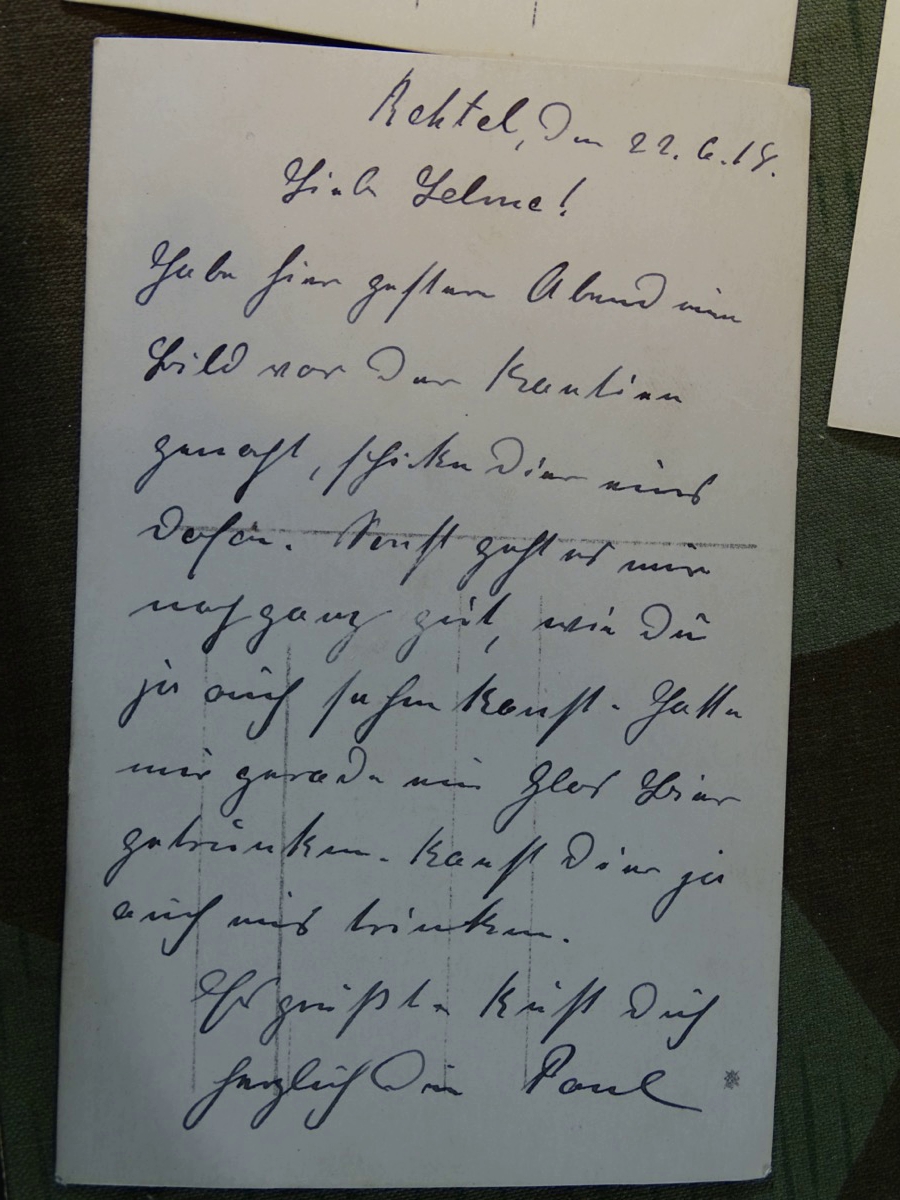 Rektel, Den 22.6.18.
Liebe Selma!
Habe hier gestern Abend ein
Bild vor der Kantiene
gemacht, schicke Dier eins
dafon. Sonst geht es mir
noch ganz gut, wie Du
ja auch sehen kanst. Hatte
mir gerade ein Glas Bier
getrunken. Kanst Dier ja
auch eins trinken.
Es grüßt u. Küst Dich
herzlich Dein Paul